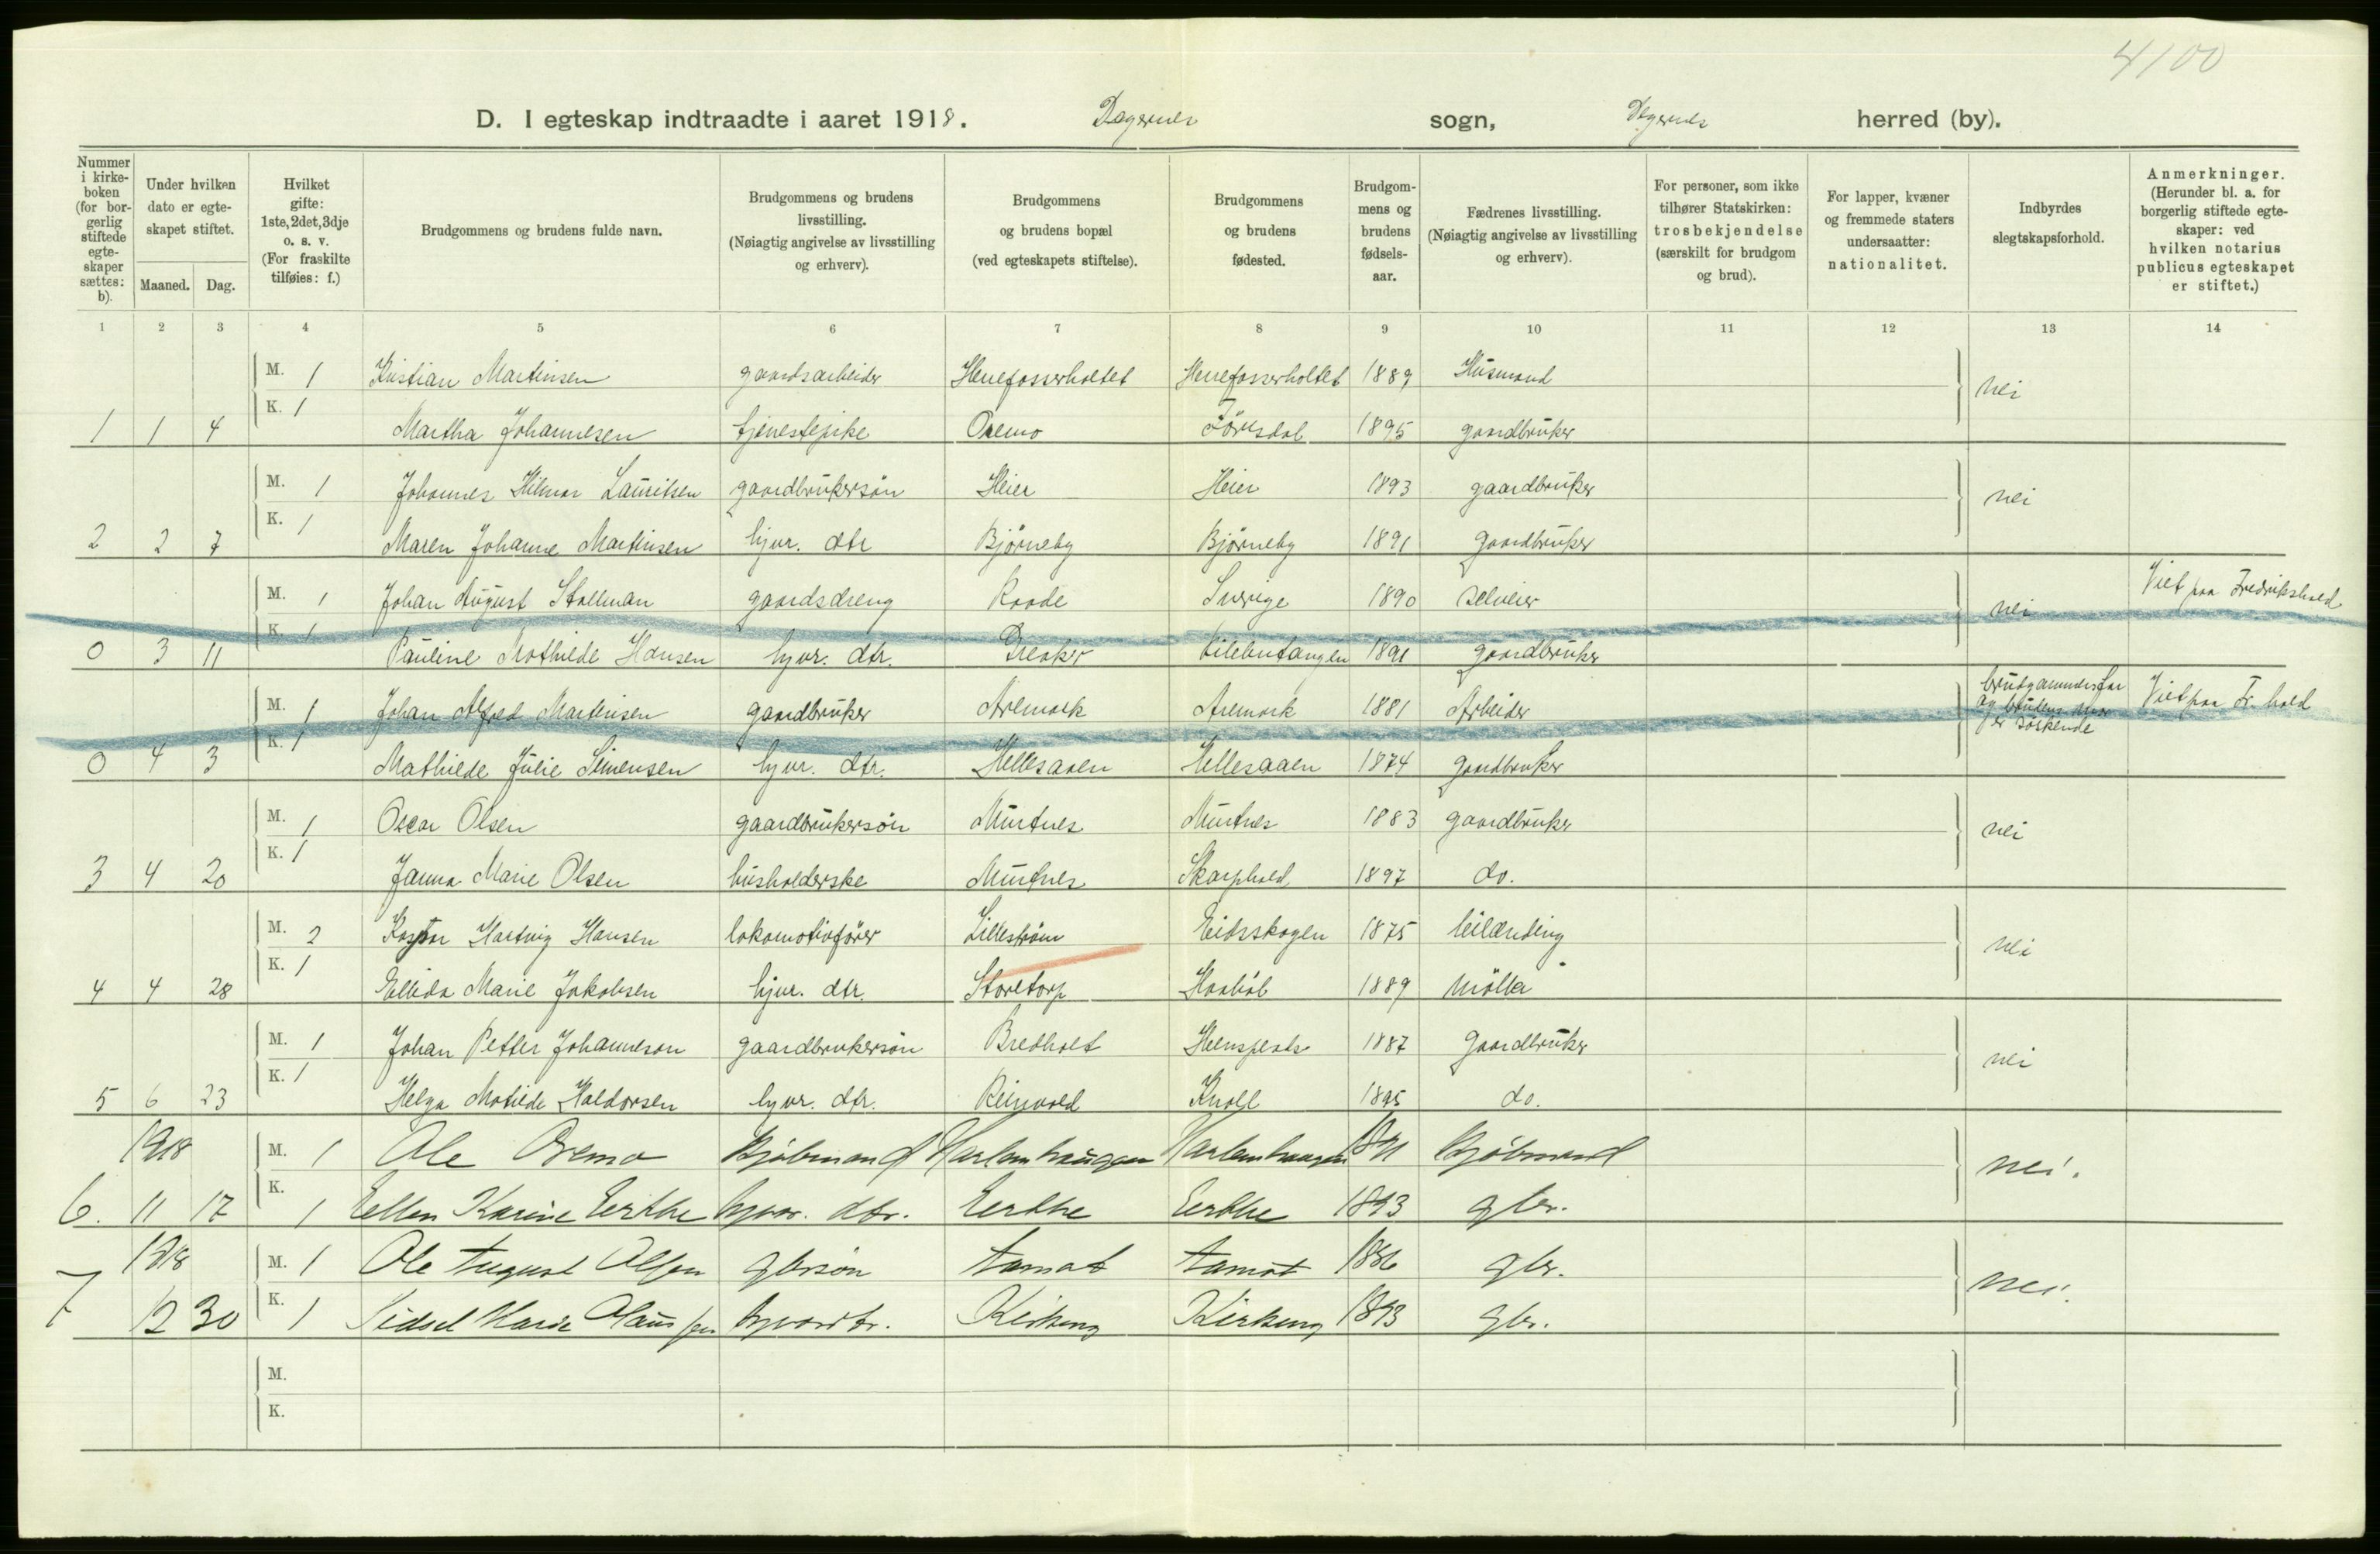 4100
D. I egteskap indtraadte i aaret 1918. Degernes sogn, Degernes herred (by).
Nummer i kirkeboken (for borgerlig stiftede egteskaper sættes: b).
Under hvilken dato er egteskapet stiftet.
Maaned. Dag.
Hvilket gifte: 1ste, 2det, 3dje o. s. v. (For fraskilte tilføies: f.)
Brudgommens og brudens fulde navn.
Brudgommens og brudens livsstilling. (Nøiagtig angivelse av livsstilling og erhverv).
Brudgommens og brudens bopæl (ved egteskapets stiftelse).
Brudgommens og brudens fødested.
Brudgommens og brudens fødselsaar.
Fædrenes livsstilling. (Nøiagtig angivelse av livsstilling og erhverv).
For personer, som ikke tilhører Statskirken: trosbekjendelse (særskilt for brudgom og brud).
For lapper, kvæner og fremmede staters undersaatter: nationalitet.
Indbyrdes slegtskapsforhold.
Anmerkninger. (Herunder bl. a. for borgerlig stiftede egteskaper: ved hvilken notarius publicus egteskapet er stiftet.)
1 2 3 4 5 6 7 8 9 10 11 12 13 14
M. 1 Kristian Martinsen gaardsarbeider 1889 Husmand nei
1 1 4 K. 1 Martha Johannesen tjenestepike Osemo 1895 gaardbruker
M. 1 Johannes Hilmar Lauritsen gaardbrukersøn Heier Heier 1893 gaardbruker nei
2 2 7 K. 1 Maren Johanne Martinsen hjvr. dtr Bjørneby Bjørneby 1891 gaardbruker
M. 1 Johan August Stallman gaardsdreng Raade Sverige 1890 selveier nei Viet paa Fredrikshald
0 3 11 K. 1 Pauline Mathilde Hansen hjvr. dtr. Greaker 1891 gaardbruker
M. 1 Johan Alfred Martinsen gaardbruker Aremark Aremark 1881 Arbeider brudgommens far og brudens mor er søskende Viet paa Fr.hald
0 4 3 K. 1 Mathilde Julie Simensen hjvr. dtr. Hellesaaen Hellesaaen 1874 gaardbruker
M. 1 Oscar Olsen gaardbrukersøn Murtnes Murtnes 1883 gaardbruker nei
3 4 20 K. 1 Janna Marie Olsen husholderske Murtnes Skarphold 1897 do.
M. 2 Kaspar Hartvig Hansen lokomotivfører Lillestrøm Eidsskogen 1875 leilænding nei
4 4 28 K. 1 Ellida Marie Jakobsen hjvr. dtr. Storetorp Haabøl 1889 Møller
M. 1 Johan Petter Johanneson gaardbrukersøn Bredholt 1887 Gaardbruker nei
5 6 23 K. 1 Helga Matilde Haldorsen hjvr. dtr. Knoll 1895 do.
1918 M. 1 Ole Osemo Kjøbmand Harlemhaugen Harlemhaugen Kjøbmand nei.
6. 11 17 K. 1 Ellen Karine Eerthe hjvr. dtr. Eerthe Eerthe 1893 gbr.
1918 M. 1 Ole August Olsen gbrsøn Aamot Aamot 1886 gbr. nei.
7 12 30 K. 1 Sidsel Marie hjvrdtr. Kirkeng Kirkeng 1893 gbr.
M.
K.